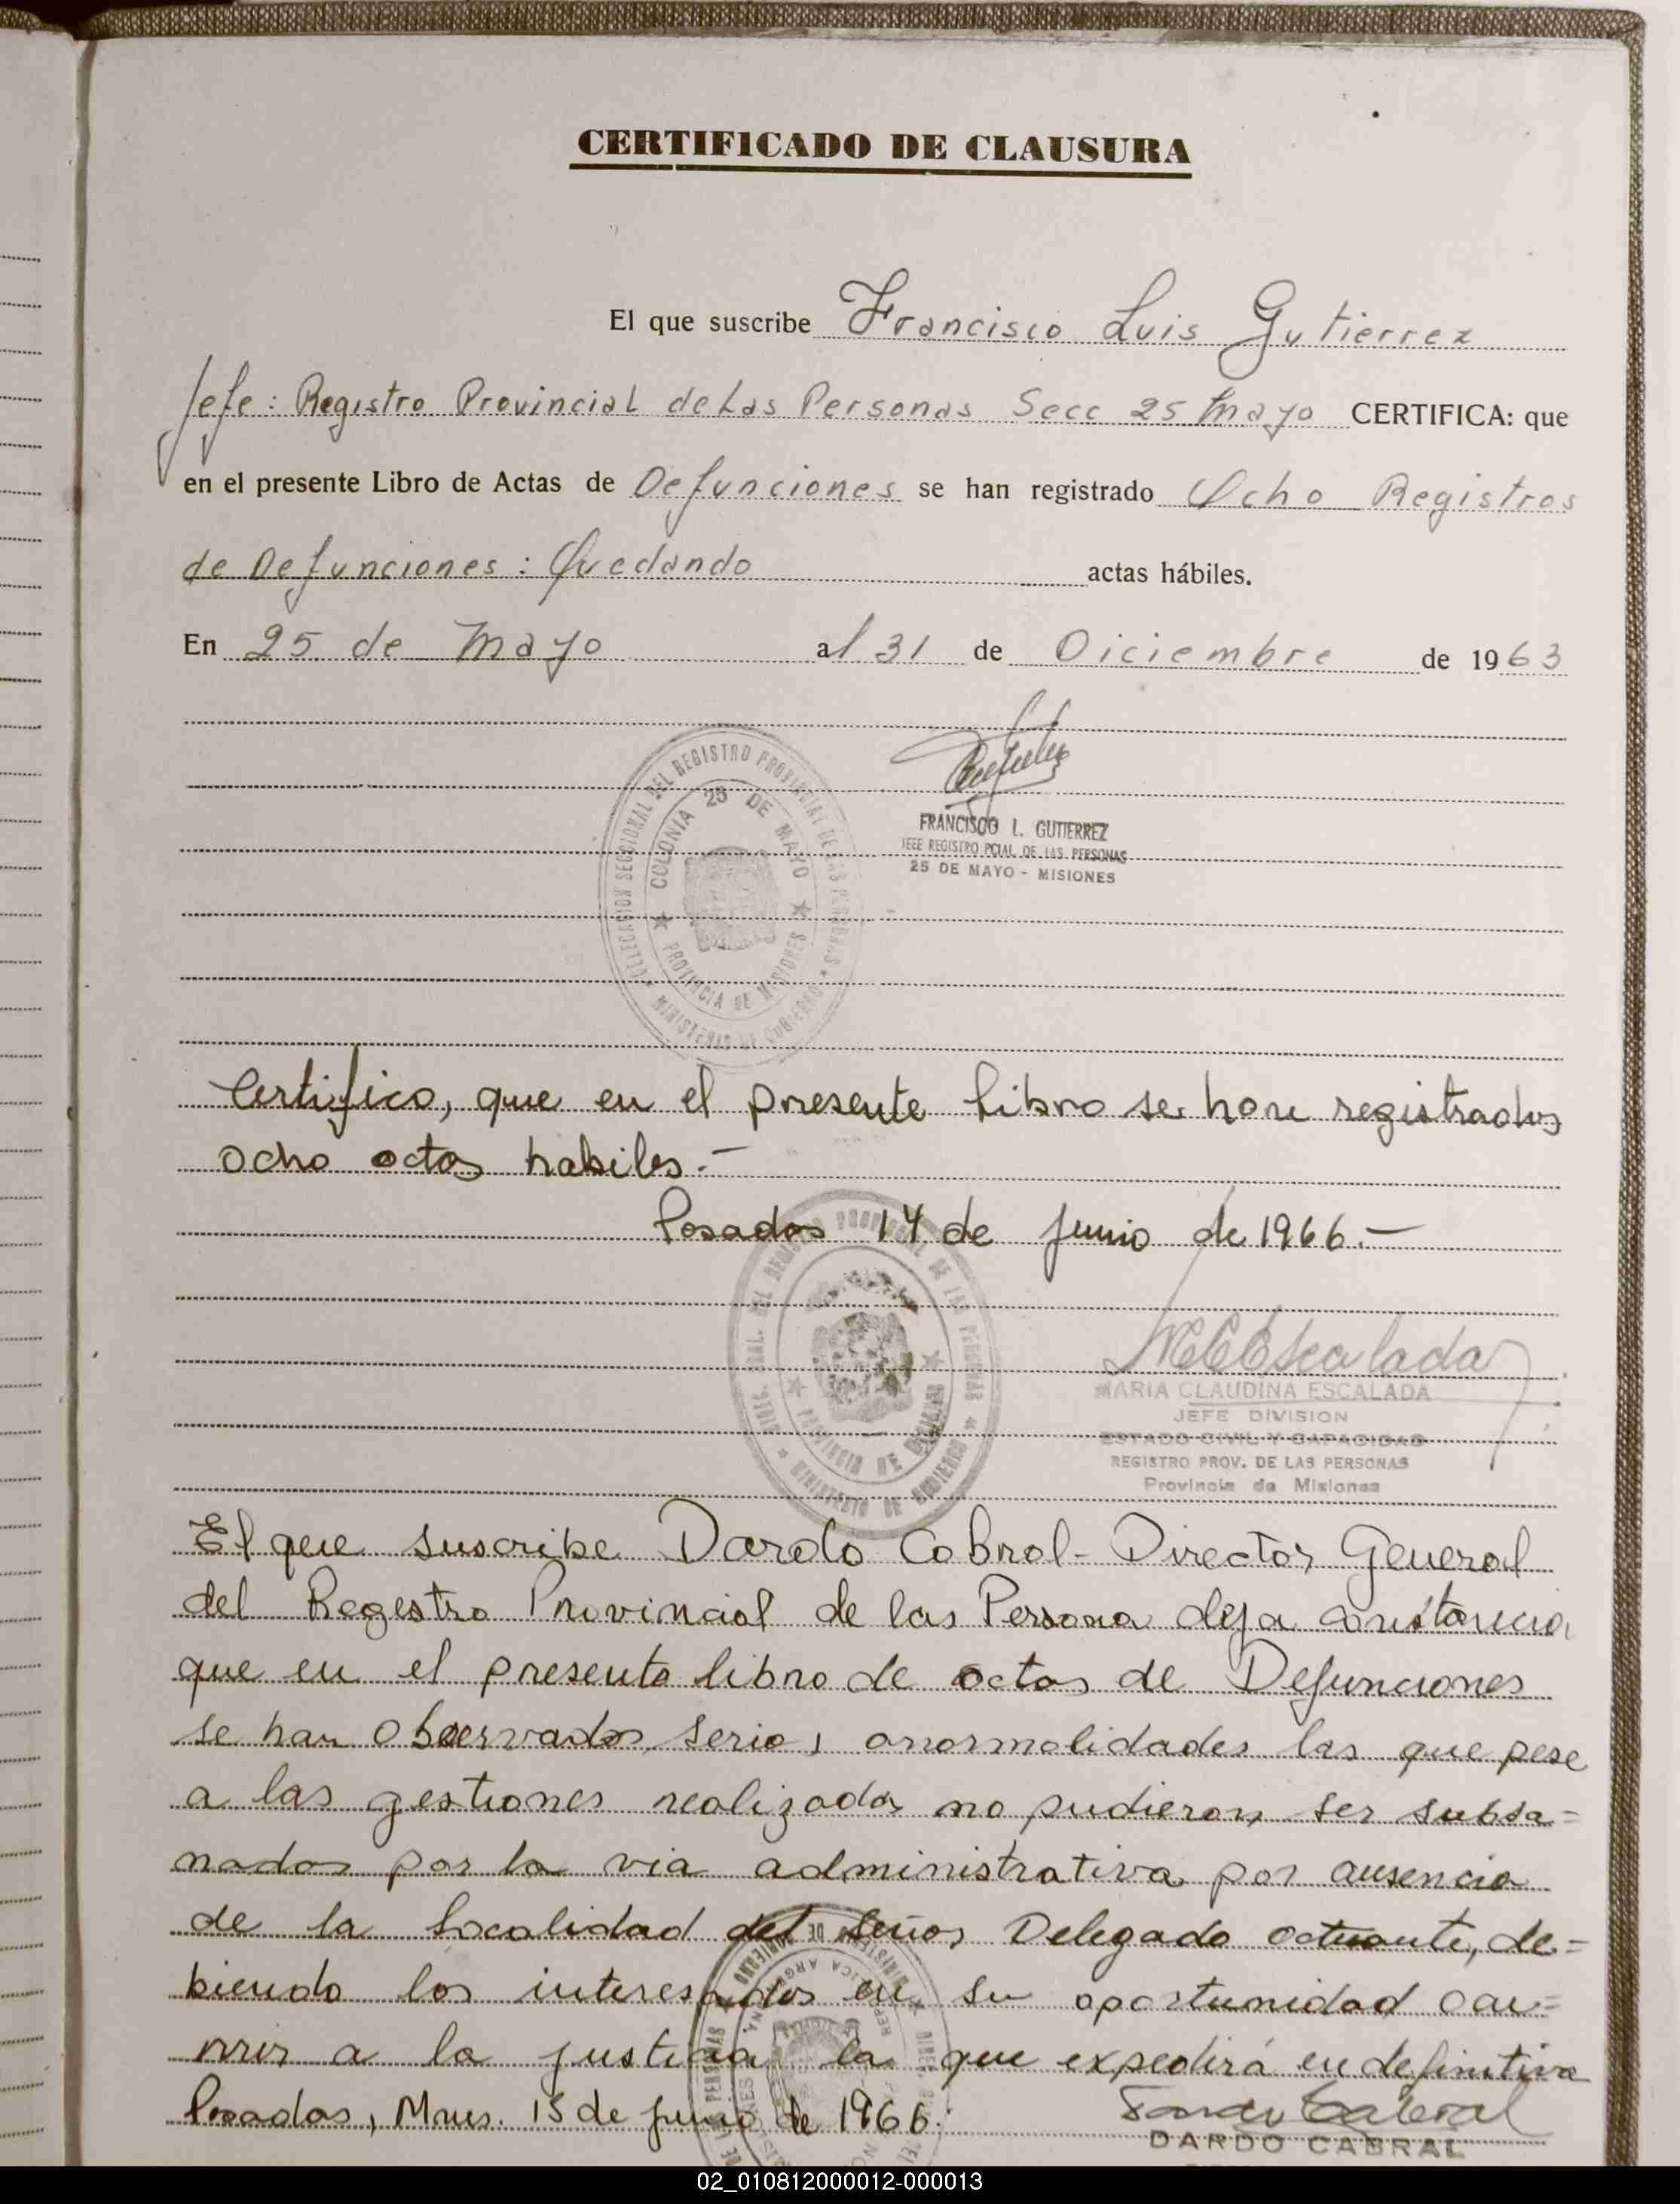 CERTIFICADO DE CLAUSURA
El que suscribe Francisco Luis Gutierrez
Jefe: Registro Provincial de Las Personas Secc 25 Mayo CERTIFICA: que
en el presente Libro de Actas de Defunciones se han registrado Ocho Registros
de Defunciones: Quedando actas hábiles.
En 25 de Mayo al 31 de Diciembre de 1963
DELEGACION SECCIONAL DEL REGISTRO PROVINCIAL DE LAS PERSONAS
MINISTERIO DE GOBIERNO
COLONIA 25 DE MAYO
PROVINCIA DE MISIONES
FRANCISCO L. GUTIERREZ
JEFE REGISTRO PCIAL. DE LAS PERSONAS
25 DE MAYO - MISIONES
Certifico, que en el presente Libro se han registrados
ocho actas habiles.-
Posadas 14 de Junio de 1966.-
GRAL. DEL REGISTRO PROVINCIAL DE LAS PERSONAS
MINISTERIO DE GOBIERNO
PROVINCIA DE MISIONES
MCEscalada
MARIA CLAUDINA ESCALADA
JEFE DIVISION
ESTADO CIVIL Y CAPACIDAD
REGISTRO PROV. DE LAS PERSONAS
Provincia de Misiones
El que suscribe Dardo Cabral - Director General
del Registro Provincial de las Persona deja constancia
que en el presente libro de actas de Defunciones
se han observados serias anormalidades las que pese
a las gestiones realizadas no pudieron ser subsa=
nadas por la via administrativa por ausencia
de la Localidad del Señor Delegado actuante, de=
biendo los interesados en su oportunidad ocu=
rrir a la justicia la que expedirá en definitiva
Posadas, Mnes. 15 de junio de 1966.
MINISTERIO DE GOBIERNO
Dardo Cabral
DARDO CABRAL
02_010812000012-000013